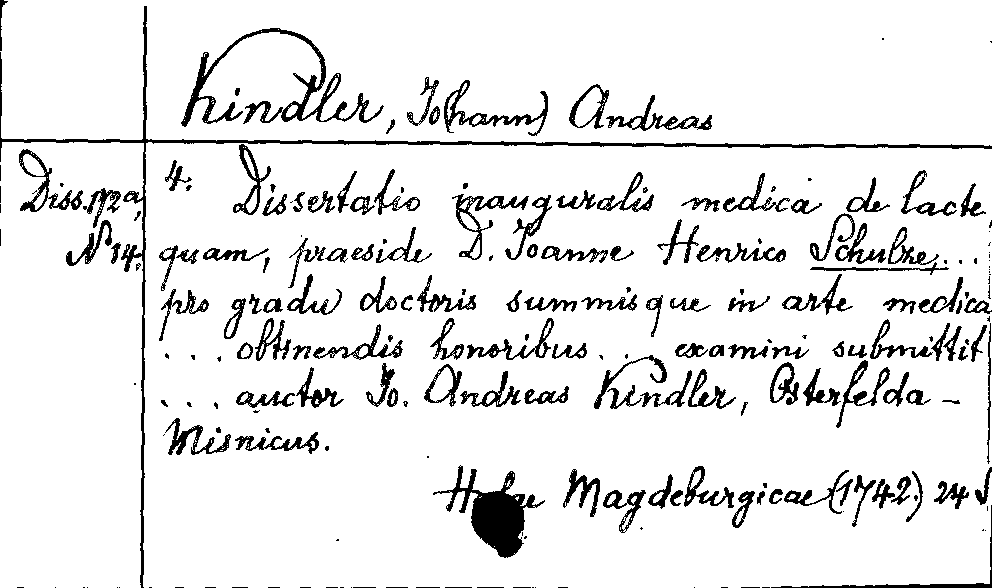 Kindler, Jo(hann) Andreas
Diss. 172a, 4: Dissertatio inauguralis medica de lacte,
N 14. quam, praeside D. Joanne Henrico Schulze, ...
pro gradu doctoris summisque in arte medica
... obtinendis honoribus ... examini submittit
... auctor Jo. Andreas Kindler, Osterfelda-
Misnicus.
Magdeburgicae (1742.) 24 S